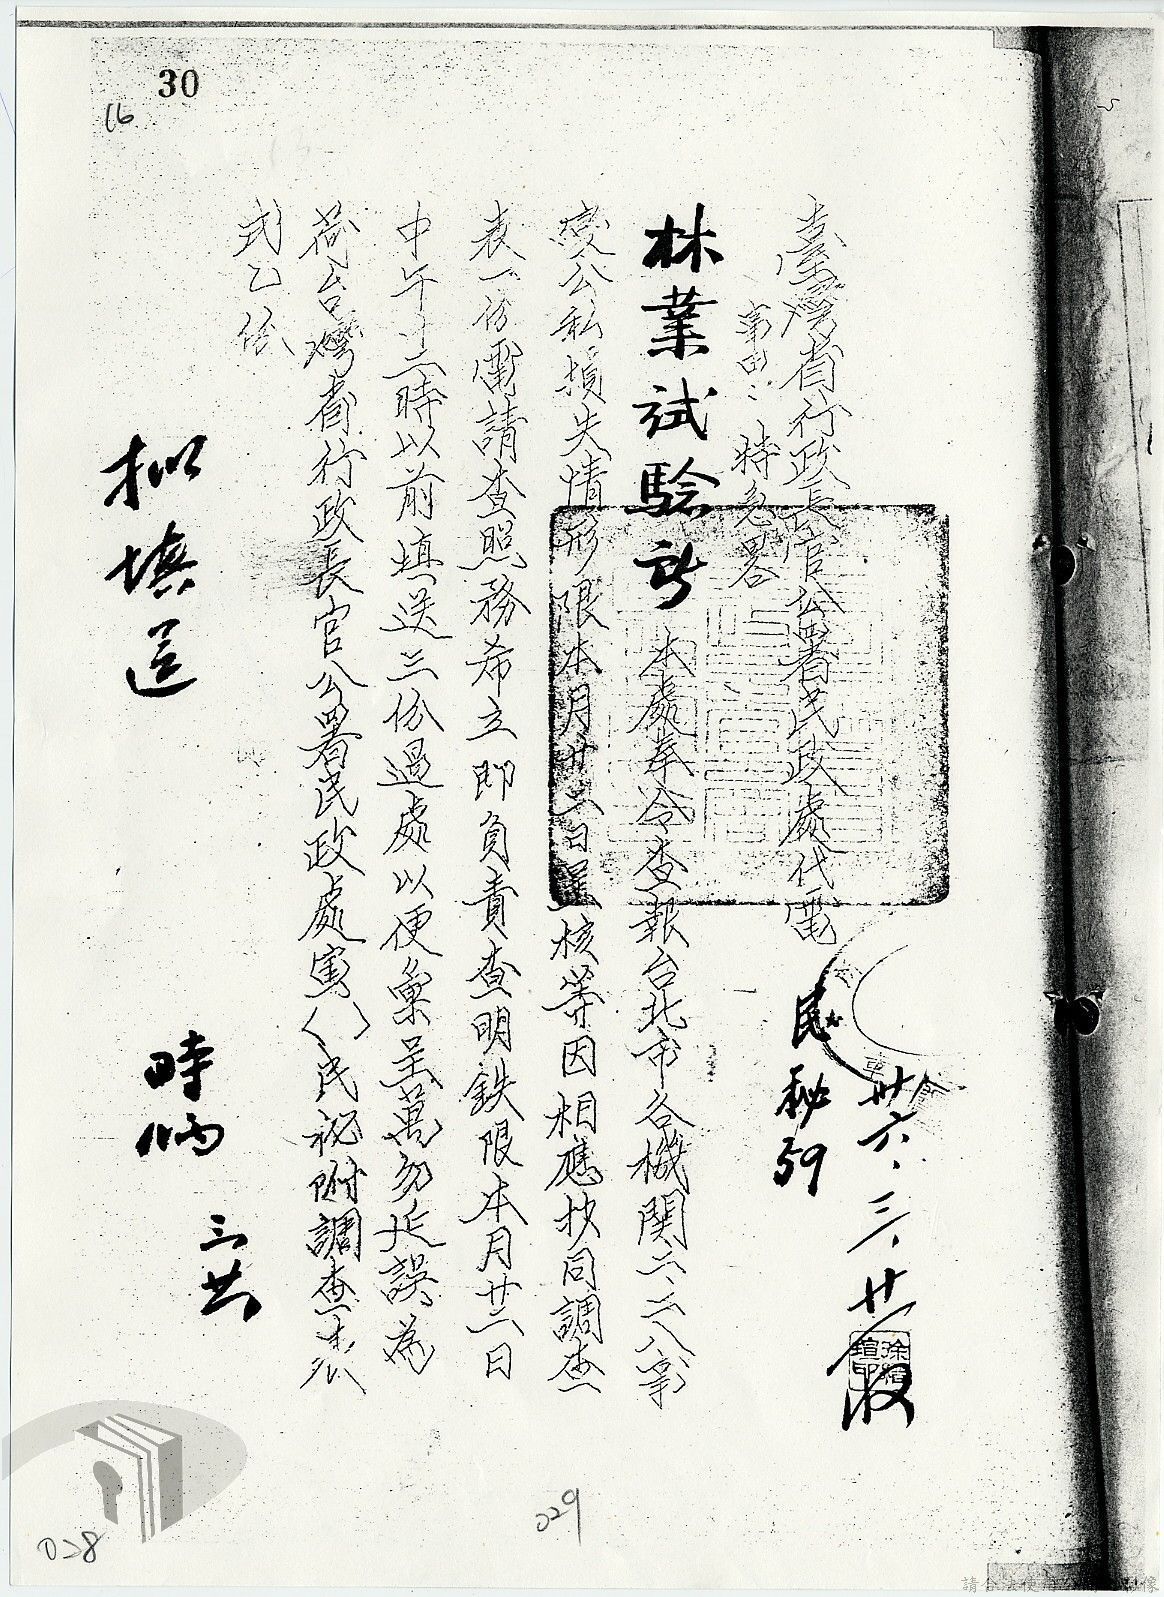 30
16
臺灣省行政長官公署民政處代電
卅六、三、廿
收
民秘59
特急
林業試驗所
本處奉令查報台北市各機関二、二八事
變公私損失情形限本月廿二日呈核等因相應抄同調查
表一份電請查照務希立即負責查明鉄限本月廿二日
中午十二時以前填送三份過處以便彙呈萬勿延誤為
荷台灣省行政長官公署民政處寅( )民秘附調查表
式乙份
拟填送
時炳
029
028